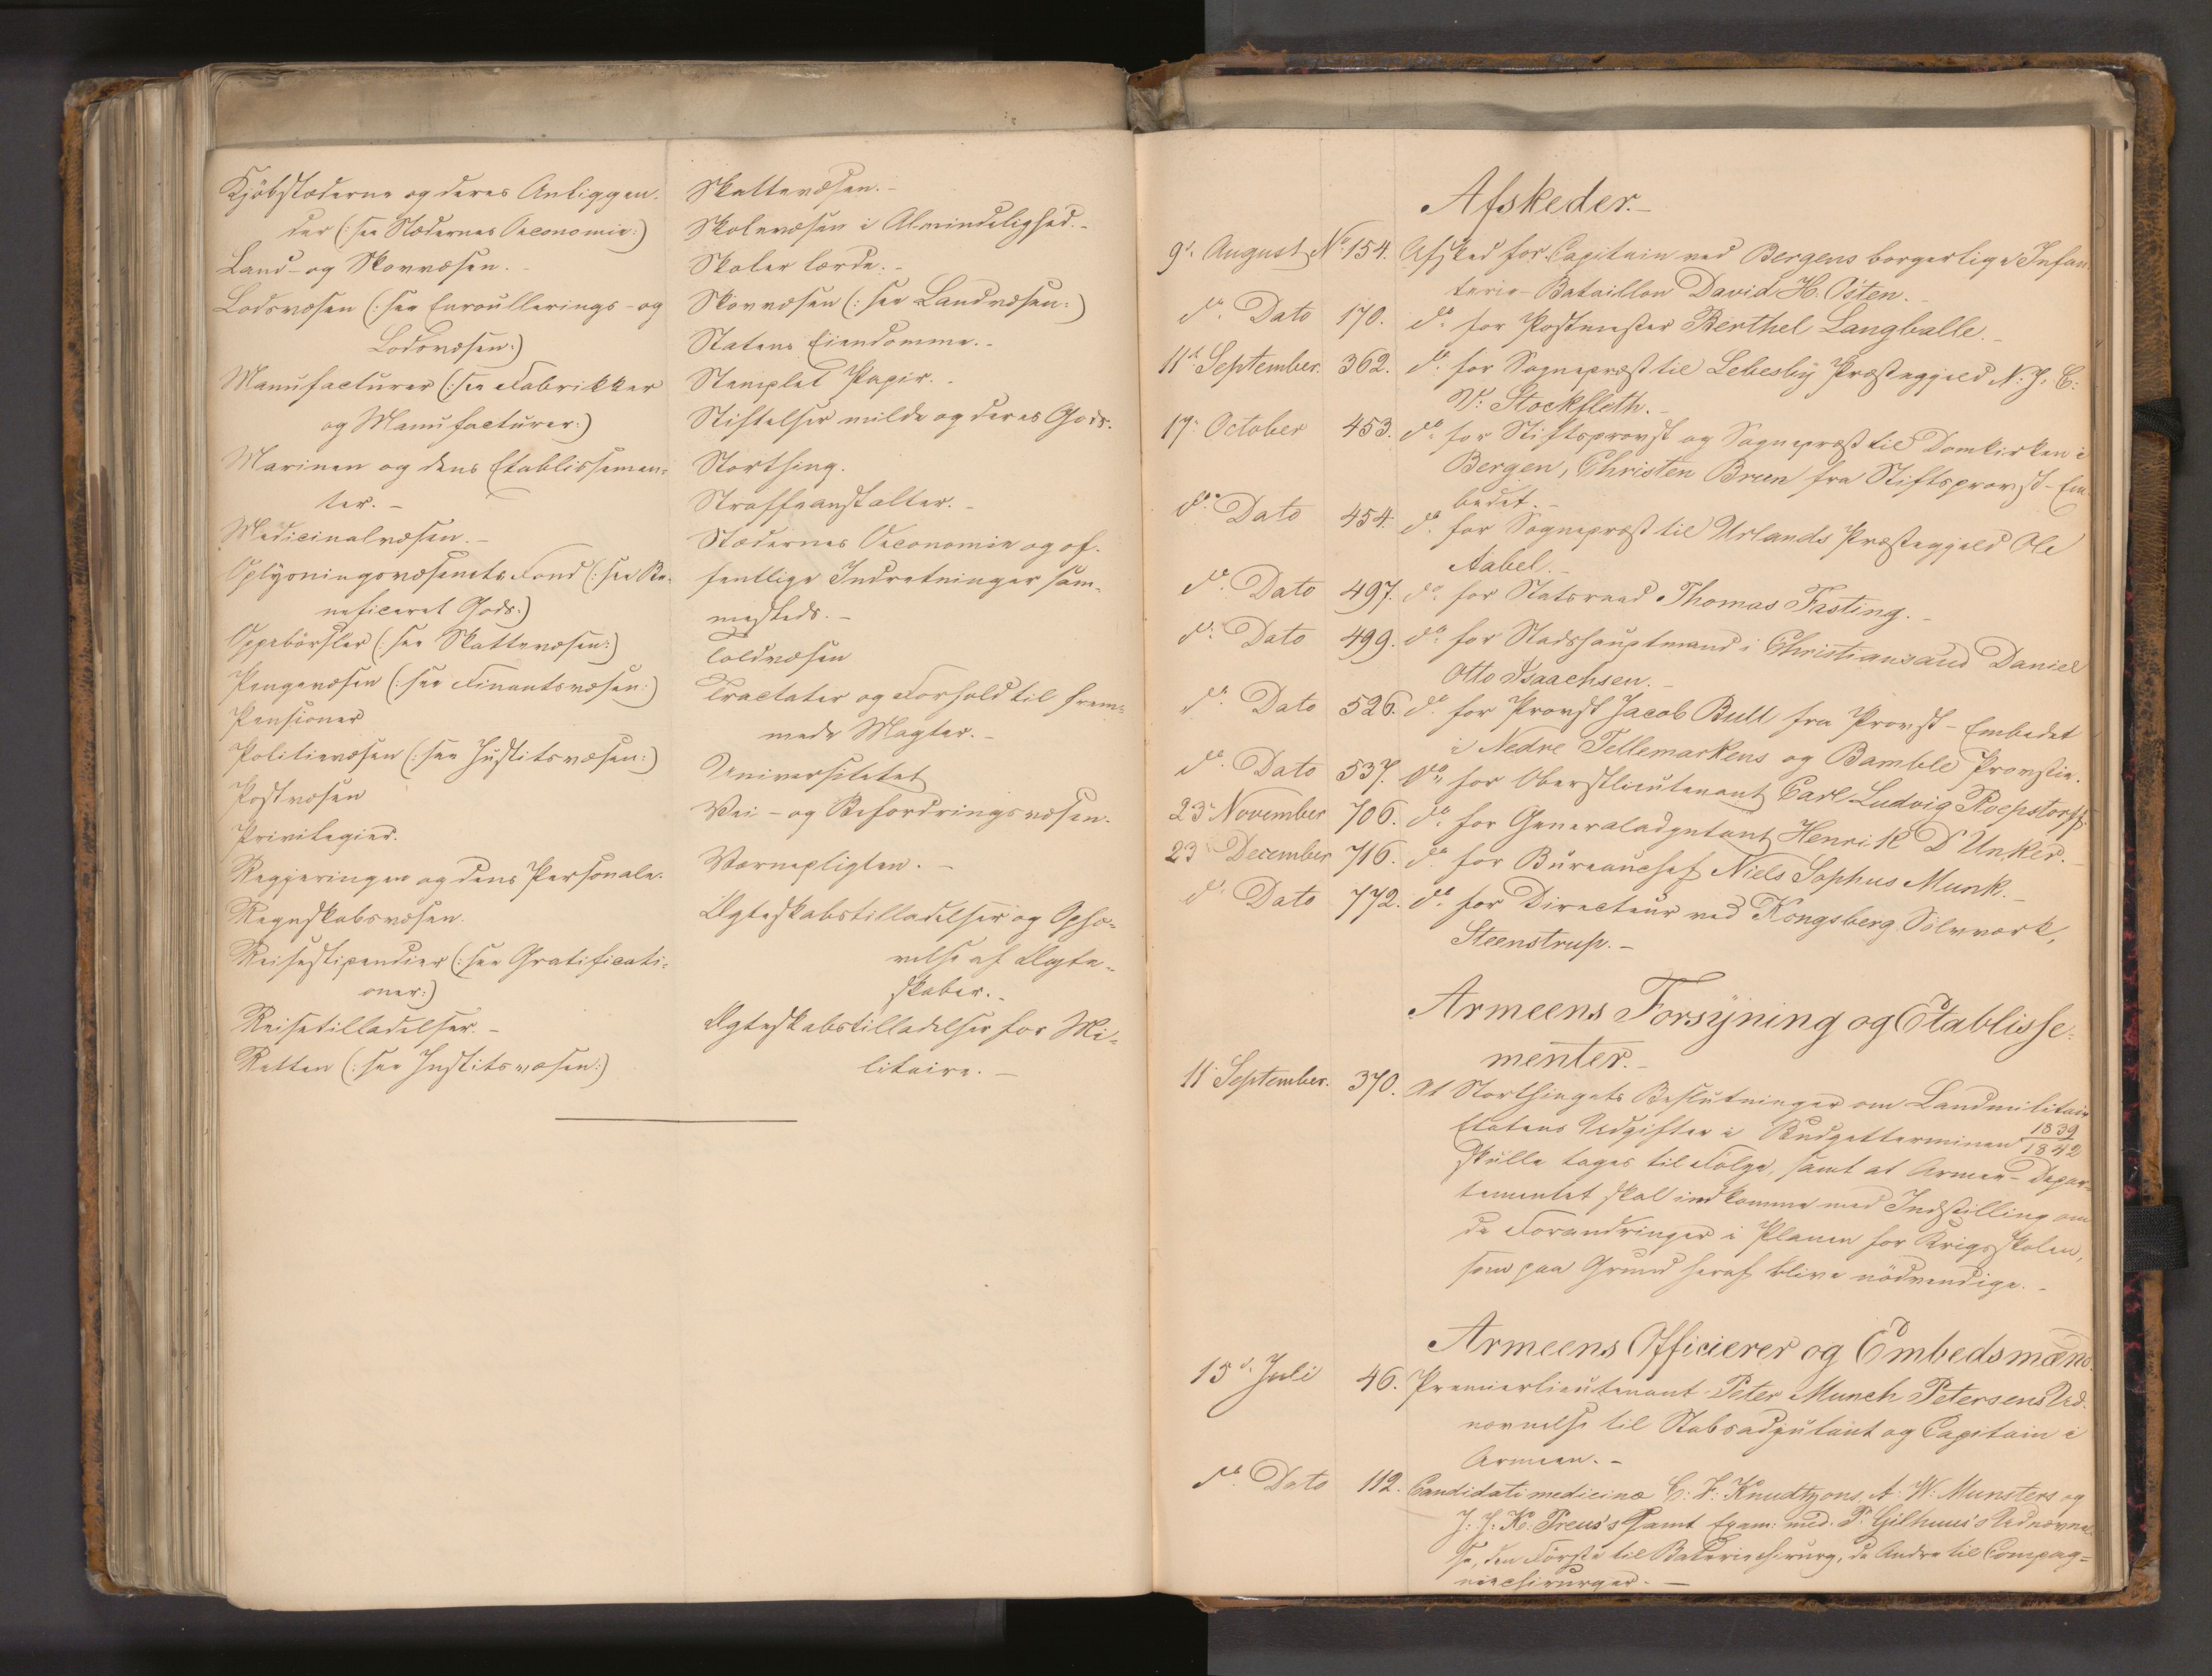 Kjöbstæderne og deres Anliggen-
der (: see Stædernes Oeconomie :)
Land- og Skovvæsen.
Lodsvæsen (: see Enroullerings- og
Lodsvæsen :)
Manufacturer (: see Fabrikker
og Manufacturer :)
Marinen og dens Etablissemen-
ter. -
Medicinalvæsen. -
Oplysningsvæsenets Fond (: see Be-
neficeret Gods :)
Oppebörsler (: see Skattevæsen :)
Pengevæsen (: see Finantsvæsen :)
Pensioner
Politievæsen (: see Justitsvæsen :)
Postvæsen
Privilegier.
Regjeringen og dens Personale.
Regnskabsvæsen.
Reisestipendier (: see Gratificati-
oner :)
Reisetilladelser. -
Retten (: see Justitsvæsen :)
Skattevæsen. -
Skolevæsen i Almindelighed. -
Skoler lærde. -
Skovvæsen (: see Landvæsen :)
Statens Eiendomme. -
Stemplet Papir. -
Stiftelser milde og deres Gods.
Storthing.
Straffeanstalter. -
Stædernes Oeconomie og of-
fentlige Indretninger sam-
mesteds. -
Toldvæsen
Tractater og Forhold til frem-
mede Magter. -
Universitetet
Vei- og Befordringsvæsen.
Værnepligten. -
Ægteskabstilladelser og Ophæ-
velse af Ægte-
skaber. -
Ægteskabstilladelser for Mi-
litaire. -
Afskeder. -
9d. August No 154. Afsked for Capitain ved Bergens borgerlige Infan-
terie-Bataillon David H. Osten. -
do. Dato 170. do. for Postmester Berthel Langballe. -
11d September. 362. do. for Sognepræst til Lebesby Præstegjeld N. J. C:
V: Stockfleth. -
19. October 453. do. for Stiftsprovst og Sognepræst til Domkirken i
Bergen, Christen Brun fra Stiftsprovst-Em-
bedet. -
do. Dato 454. do. for Sognepræst til Urlands Præstegjeld Ole
Aabel. -
do. Dato 497. do. for Statsraad Thomas Fasting. -
do. Dato 499. do. for Stadshauptmand i Christiansand Daniel
Otto Isaachsen. -
do. Dato 526. do. for Provst Jacob Bull fra Provst-Embedet
i Nedre Tellemarkens og Bamble Provstie.
do. Dato 537. do. for Oberstlieutenant Carl Ludvig Roepstorff.
23 November 706. do. for Generaladjutant Henrik D'Unker. -
23 December 716. do. for Bureauchef Niels Sophus Munk. -
do. Dato 772. do. for Directeur ved Kongsberg Sölvværk,
Steenstrup. -
Armeens Forsyning og Etablisse-
menter. -
11 September. 370. At Storthingets Beslutninger om Landmilitair
Etatens Udgifter i Budgetterminen 1839/1842
skulle tages til Følge, samt at Armee-Depar-
tementet skal indkomme med Indstilling om
de Forandringer i Planen for Krigsskolen,
som paa Grund heraf blive nödvendige. -
Armeens Officierer og Embedsmænd.
15d. Juli 46. Premierlieutenant Peter Munch Petersens Ud-
nævnelse til Stabsadjutant og Capitain i
Armeen. -
do. Dato 112. Candidati medicinæ C: F: Knudtzons, A: W: Munsters og
J: J: K: Preus's samt Exam: med. P. Gilhuus's Udnævnel-
se, den Förste til Bataries chirurg, de Andre til Compag-
niechirurger. -